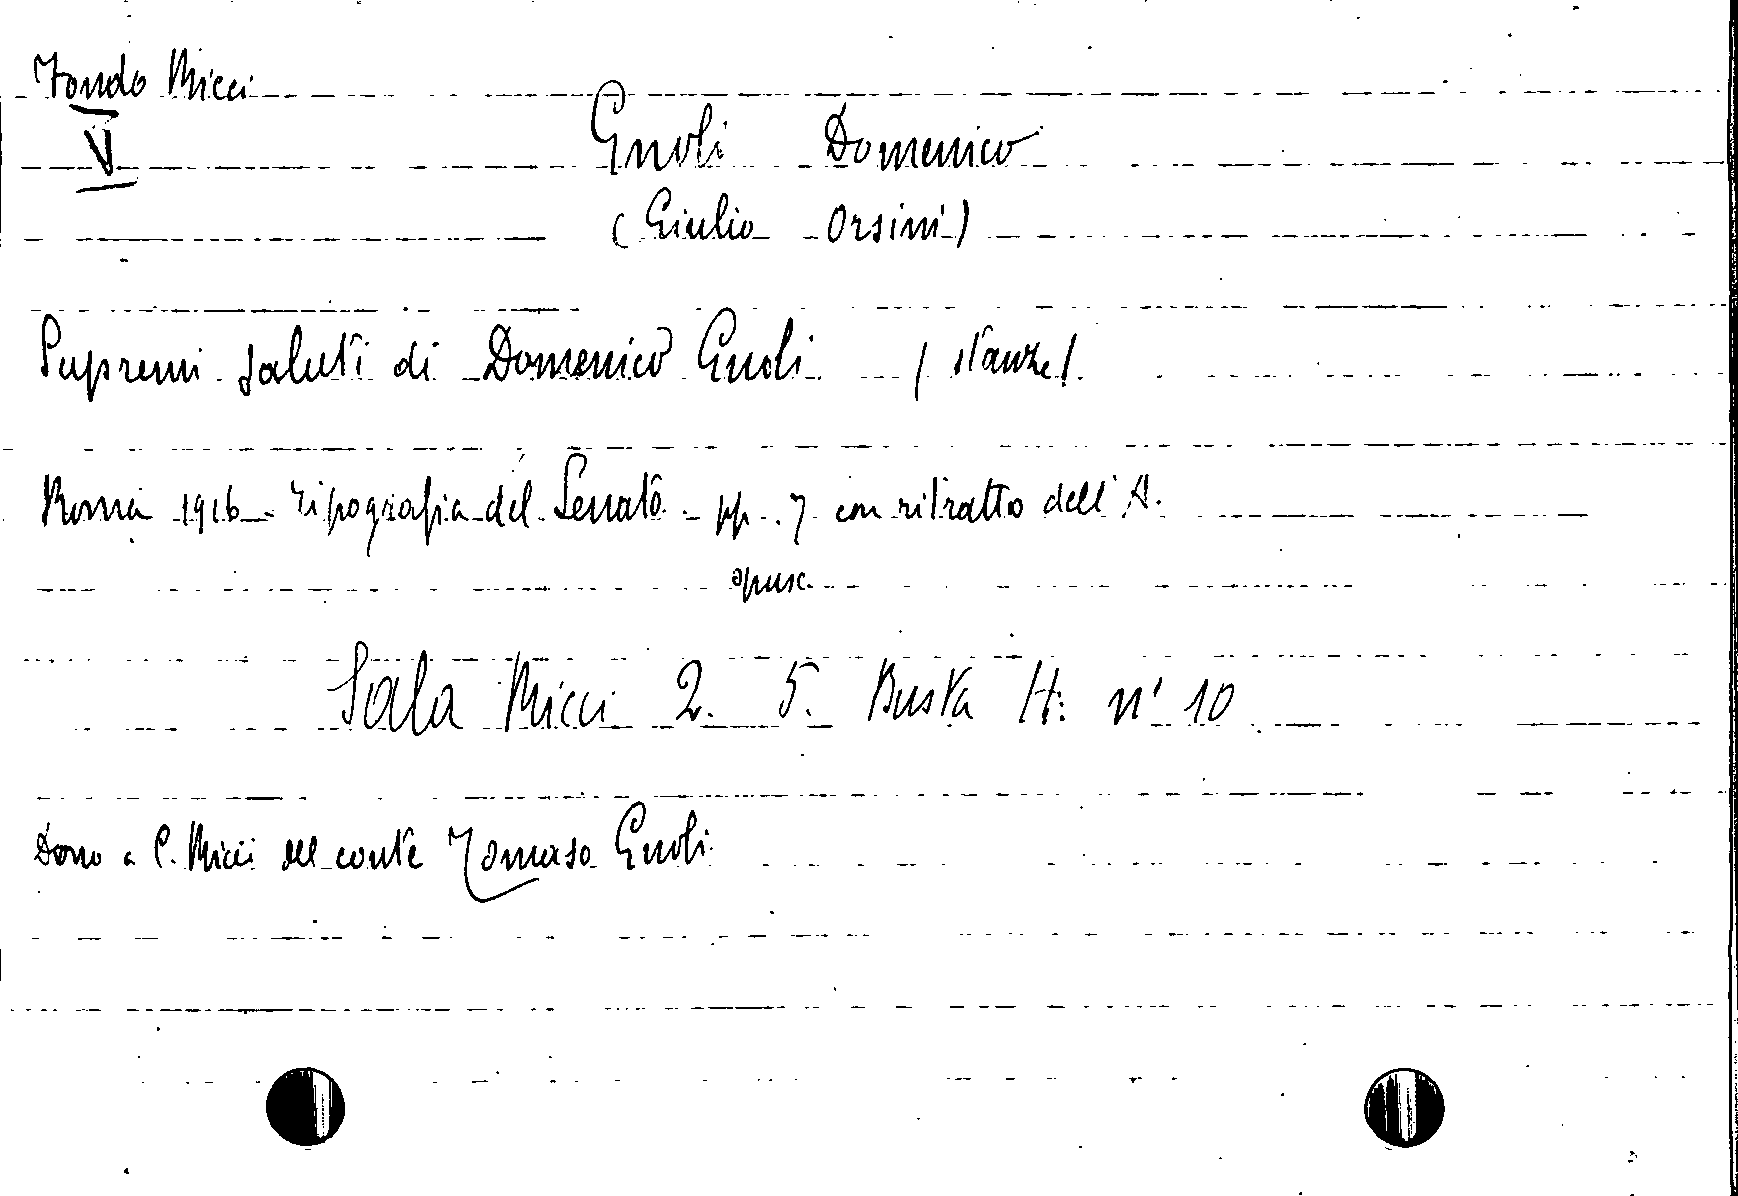 Fondo Ricci
V
Gnoli Domenico
(Giulio Orsini)
Supremi saluti di Domenico Gnoli (stanze)
Roma 1916 - Tipografia del Senato - pp. 7 con ritratto dell'A.
opusc.
Sala Ricci 2. 5. Busta H: n° 10
Dono a C. Ricci del conte Tomaso Gnoli